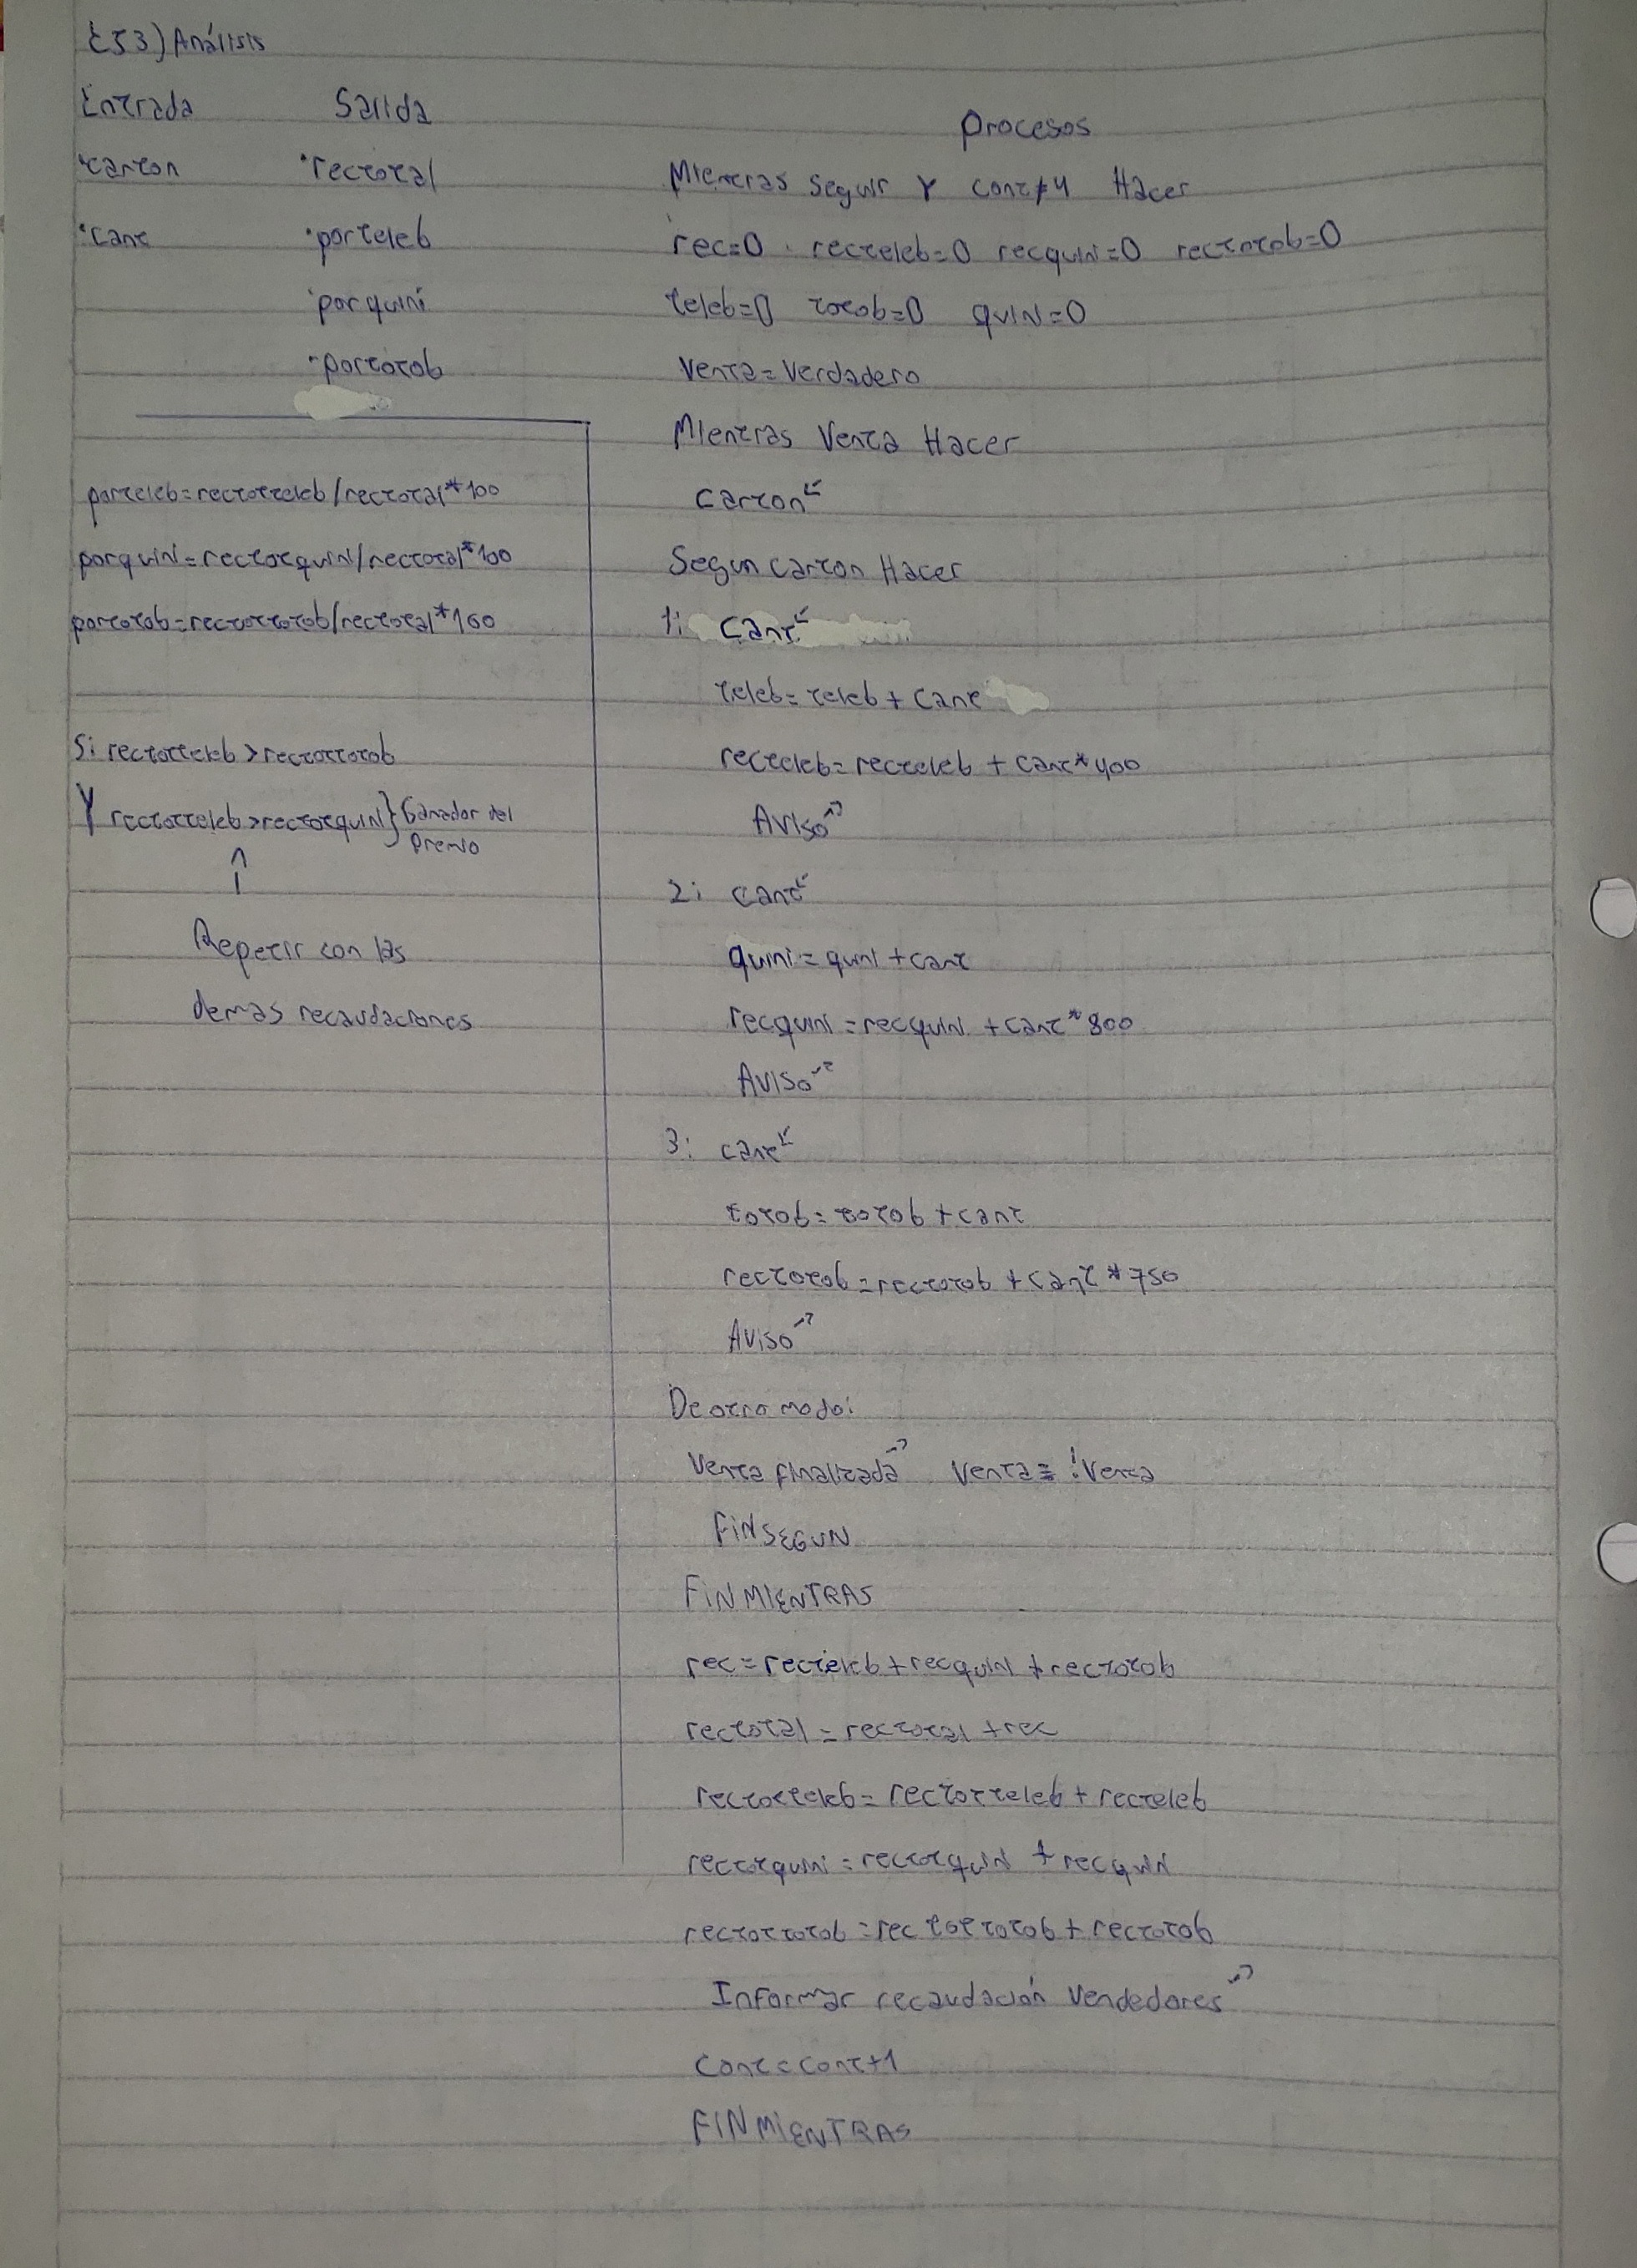 Ej3) Análisis
Entrada Salida
·carton ·rectotal
·cant ·porteleb
·porquini
·portotob
porteleb=rectotteleb/rectotal*100
porquini=rectotquini/rectotal*100
portotob=rectottotob/rectotal*100
Si rectotteleb>rectottotob
Y rectotteleb>rectotquini} Ganador del
Premio
↑
Repetir con las
demas recaudaciones
Procesos
Mientras seguir Y cont≠4 Hacer
rec=0 recteleb=0 recquini=0 rectotob=0
teleb=0 totob=0 quini=0
Venta=Verdadero
Mientras Venta Hacer
Carton↙
Segun carton Hacer
1: Cant↙
teleb=teleb+Cant
recteleb=recteleb+cant*400
Aviso↗
2: Cant↙
quini=quini+cant
recquini=recquini+cant*800
Aviso↗
3: cant↙
totob=totob+cant
rectotob=rectotob+cant*750
Aviso↗
De otro modo:
Venta finalizada↗ Venta=!Venta
FINSEGUN
FINMIENTRAS
rec=recteleb+recquini+rectotob
rectotal=rectotal+rec
rectotteleb=rectotteleb+recteleb
rectotquini=rectotquini+recquini
rectottotob=rectottotob+rectotob
Informar recaudación Vendedores↗
Cont=cont+1
FINMIENTRAS